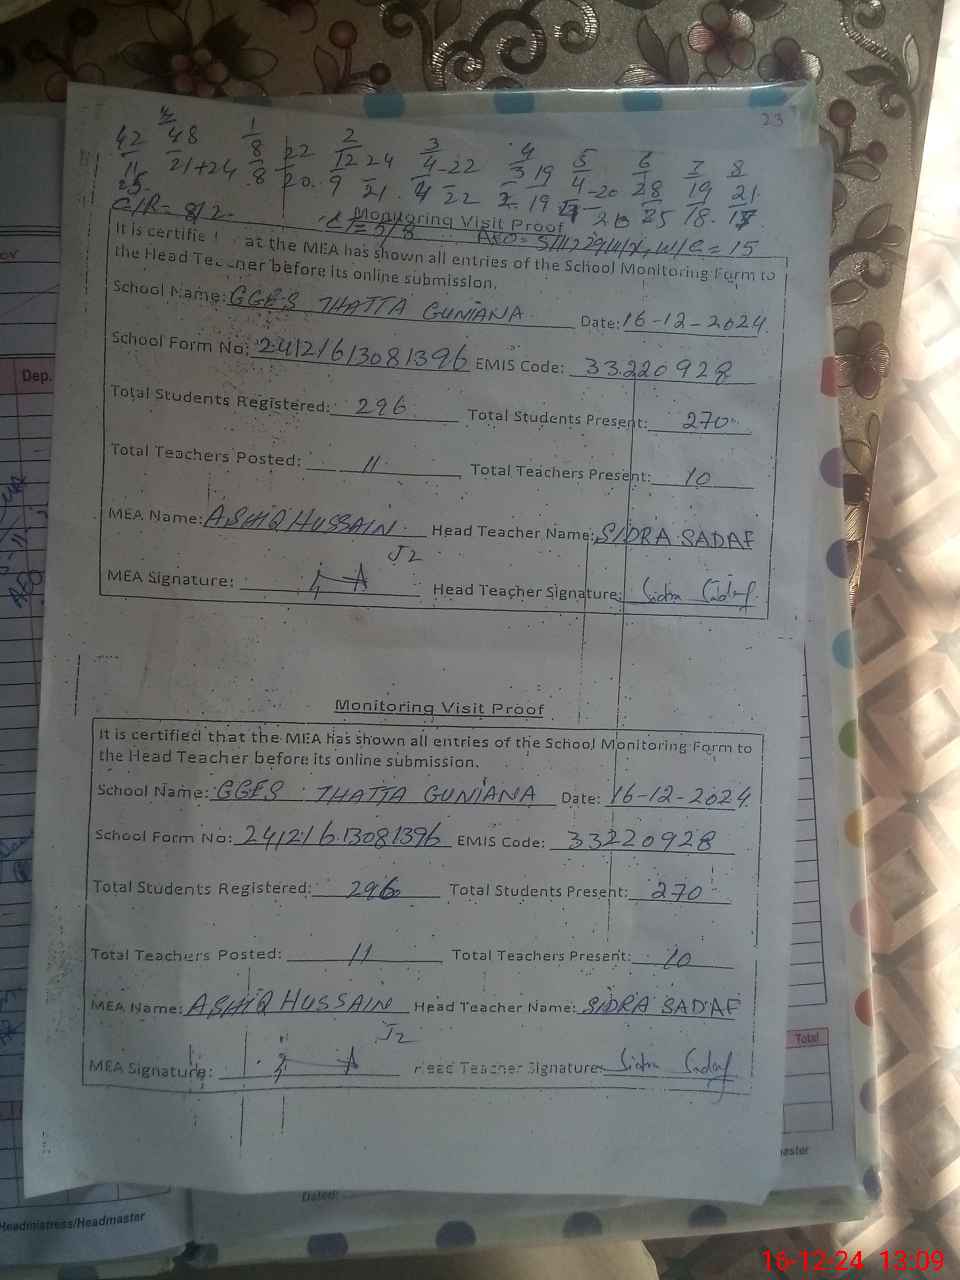 23
42 48 1 2 3 4 5 6 7 8
11 21+24 8 22 12 24 4-22 3 19 4-20 28 19 21
8 20 9 21 4 22 19 25 18
C/R= 8/2
Monitoring Visit Proof
W/C = 15
It is certifie at the MEA has shown all entries of the School Monitoring Form to
the Head Teacher before its online submission.
School Name: GGES THATTA GUNIANA Date: 16-12-2024
School Form No: 24121613081396 EMIS Code: 33220928
Total Students Registered: 296 Total Students Present: 270
Total Teachers Posted: 11 Total Teachers Present: 10
MEA Name: ASHIQ HUSSAIN Head Teacher Name: SIDRA SADAF
J2
MEA Signature: Head Teacher Signature: Sidra Sadaf
Monitoring Visit Proof
It is certified that the MEA has shown all entries of the School Monitoring Form to
the Head Teacher before its online submission.
School Name: GGES THATTA GUNIANA Date: 16-12-2024
School Form No: 24121613081396 EMIS Code: 33220928
Total Students Registered: 296 Total Students Present: 270
Total Teachers Posted: 11 Total Teachers Present: 10
MEA Name: ASHIQ HUSSAIN Head Teacher Name: SIDRA SADAF
J2
MEA Signature: Head Teacher Signature: Sidra Sadaf
Dep.
Total
Dated:
Headmistress/Headmaster
16-12-24 13:09